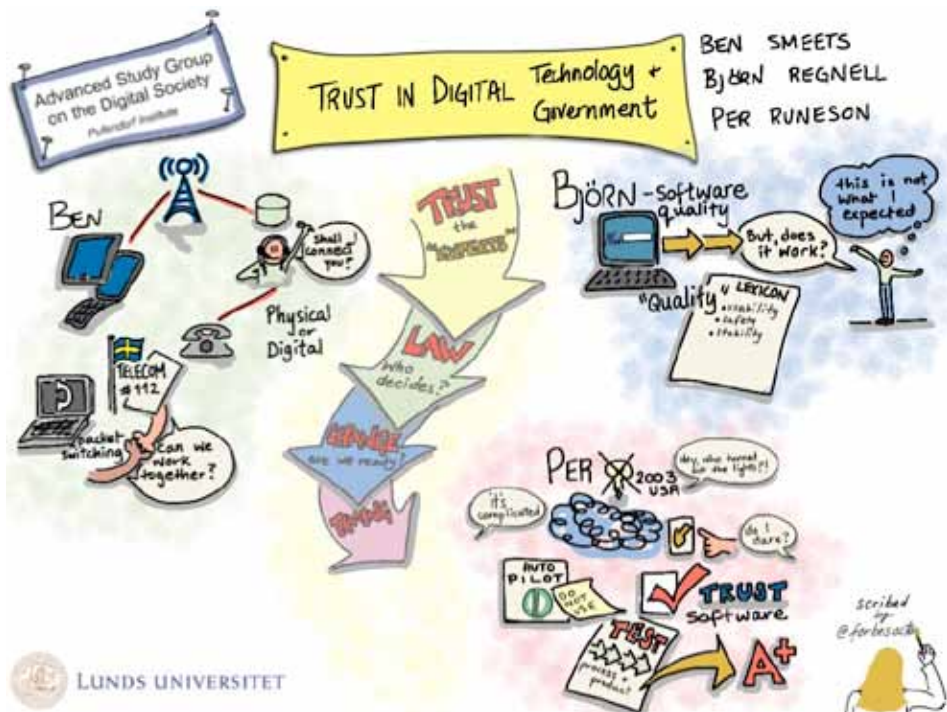 Advanced Study Group
on the Digital Society
Pufendorf Institute
TRUST IN DIGITAL Technology +
Government
BEN SMEETS
BJÖRN REGNELL
PER RUNESON
BEN
Shall I
connect
you?
Physical
or
Digital
TELECOM
#112
packet
switching
Can we
work
together?
TRUST
the
LAW
Who
decides?
CHANGE
are we ready?
BJÖRN - Software
quality
But, does
it work?
this is not
what I
expected
"Quality"
LEXICON
• usability
• safety
• stability
PER
2003
USA
hey, who turned
out the lights?!
it's
complicated
do I
dare?
AUTO
PILOT
DO
NOT
USE
TRUST
software
TEST
process +
product
A+
scribed
by
LUNDS UNIVERSITET